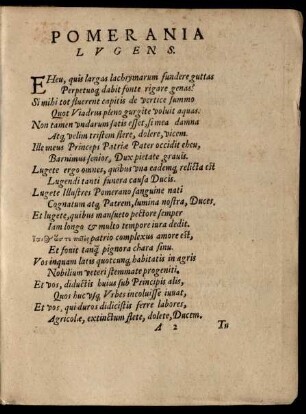 POMERANIA
LVGENS.
EHeu, quis largas lachrymarum fundere guttas
Perpetuoq́; dabit fonte rigare genas?
Si mihi tot fluerent capitis de vertice summo
Quot Viadrus pleno gurgite voluit aquas.
Non tamen vndarum satis esset, si mea damna
Atq́; velim tristem flere, dolere, vicem.
Ille meus Princeps Patriæ Pater occidit eheu,
Barnimus senior, Dux pietate grauis.
Lugete ergo omnes, quibus vna eademq́; relicta est
Lugendi tanti funera causa Ducis.
Lugete Illustres Pomerano sanguine nati
Cognatum atq́; Patrem, lumina nostra, Duces.
Et lugete, quibus mansueto pectore semper
Iam longo & multo tempore iura dedit.
patrio complexus amore est,
Et fouit tanq́; pignora chara sinu.
Vos inquam latis quotcunq́; habitatis in agris
Nobilium veteri stemmate progeniti.
Et vos, diductis huius sub Principis alis,
Quos huc vsq́; Vrbes incoluisse iuuat,
Et vos, qui duros didicistis ferre labores,
Agricolæ, extinctum flete, dolete, Ducem.
A 2 Tu